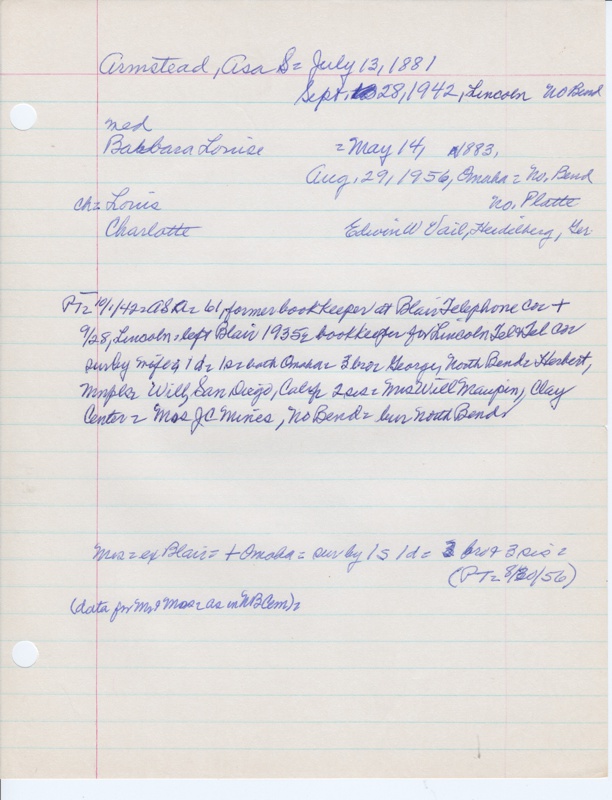 Armstead, Asa S = July 13, 1881
Sept. 28, 1942, Lincoln No Bend
med
Barbara Louise = May 14, 1883,
Aug. 29, 1956, Omaha = No. Bend
ch = Louis No. Platte
Charlotte Edwin W Vail, Heidilberg, Ger
PT = 10/1/42 = ASA = 61, former bookkeeper at Blair Telephone Co = +
9/28, Lincoln = left Blair 1935 = bookkeeper for Lincoln Tel & Tel Co =
surby wife & 1 d = 1 s = both Omaha = 3 bro = George, North Bend = Herbert,
Mnpls = Will, San Diego, Calif = 2 sis = Mrs Will Maupin, Clay
Center = Mrs J C Mines, No Bend = bur North Bend =
Mrs = ex Blair = + Omaha = surby 1 s 1 d = 3 bro & 3 sis =
(PT = 8/30/56)
(data for Mr & Mrs = as in NB Cem) =